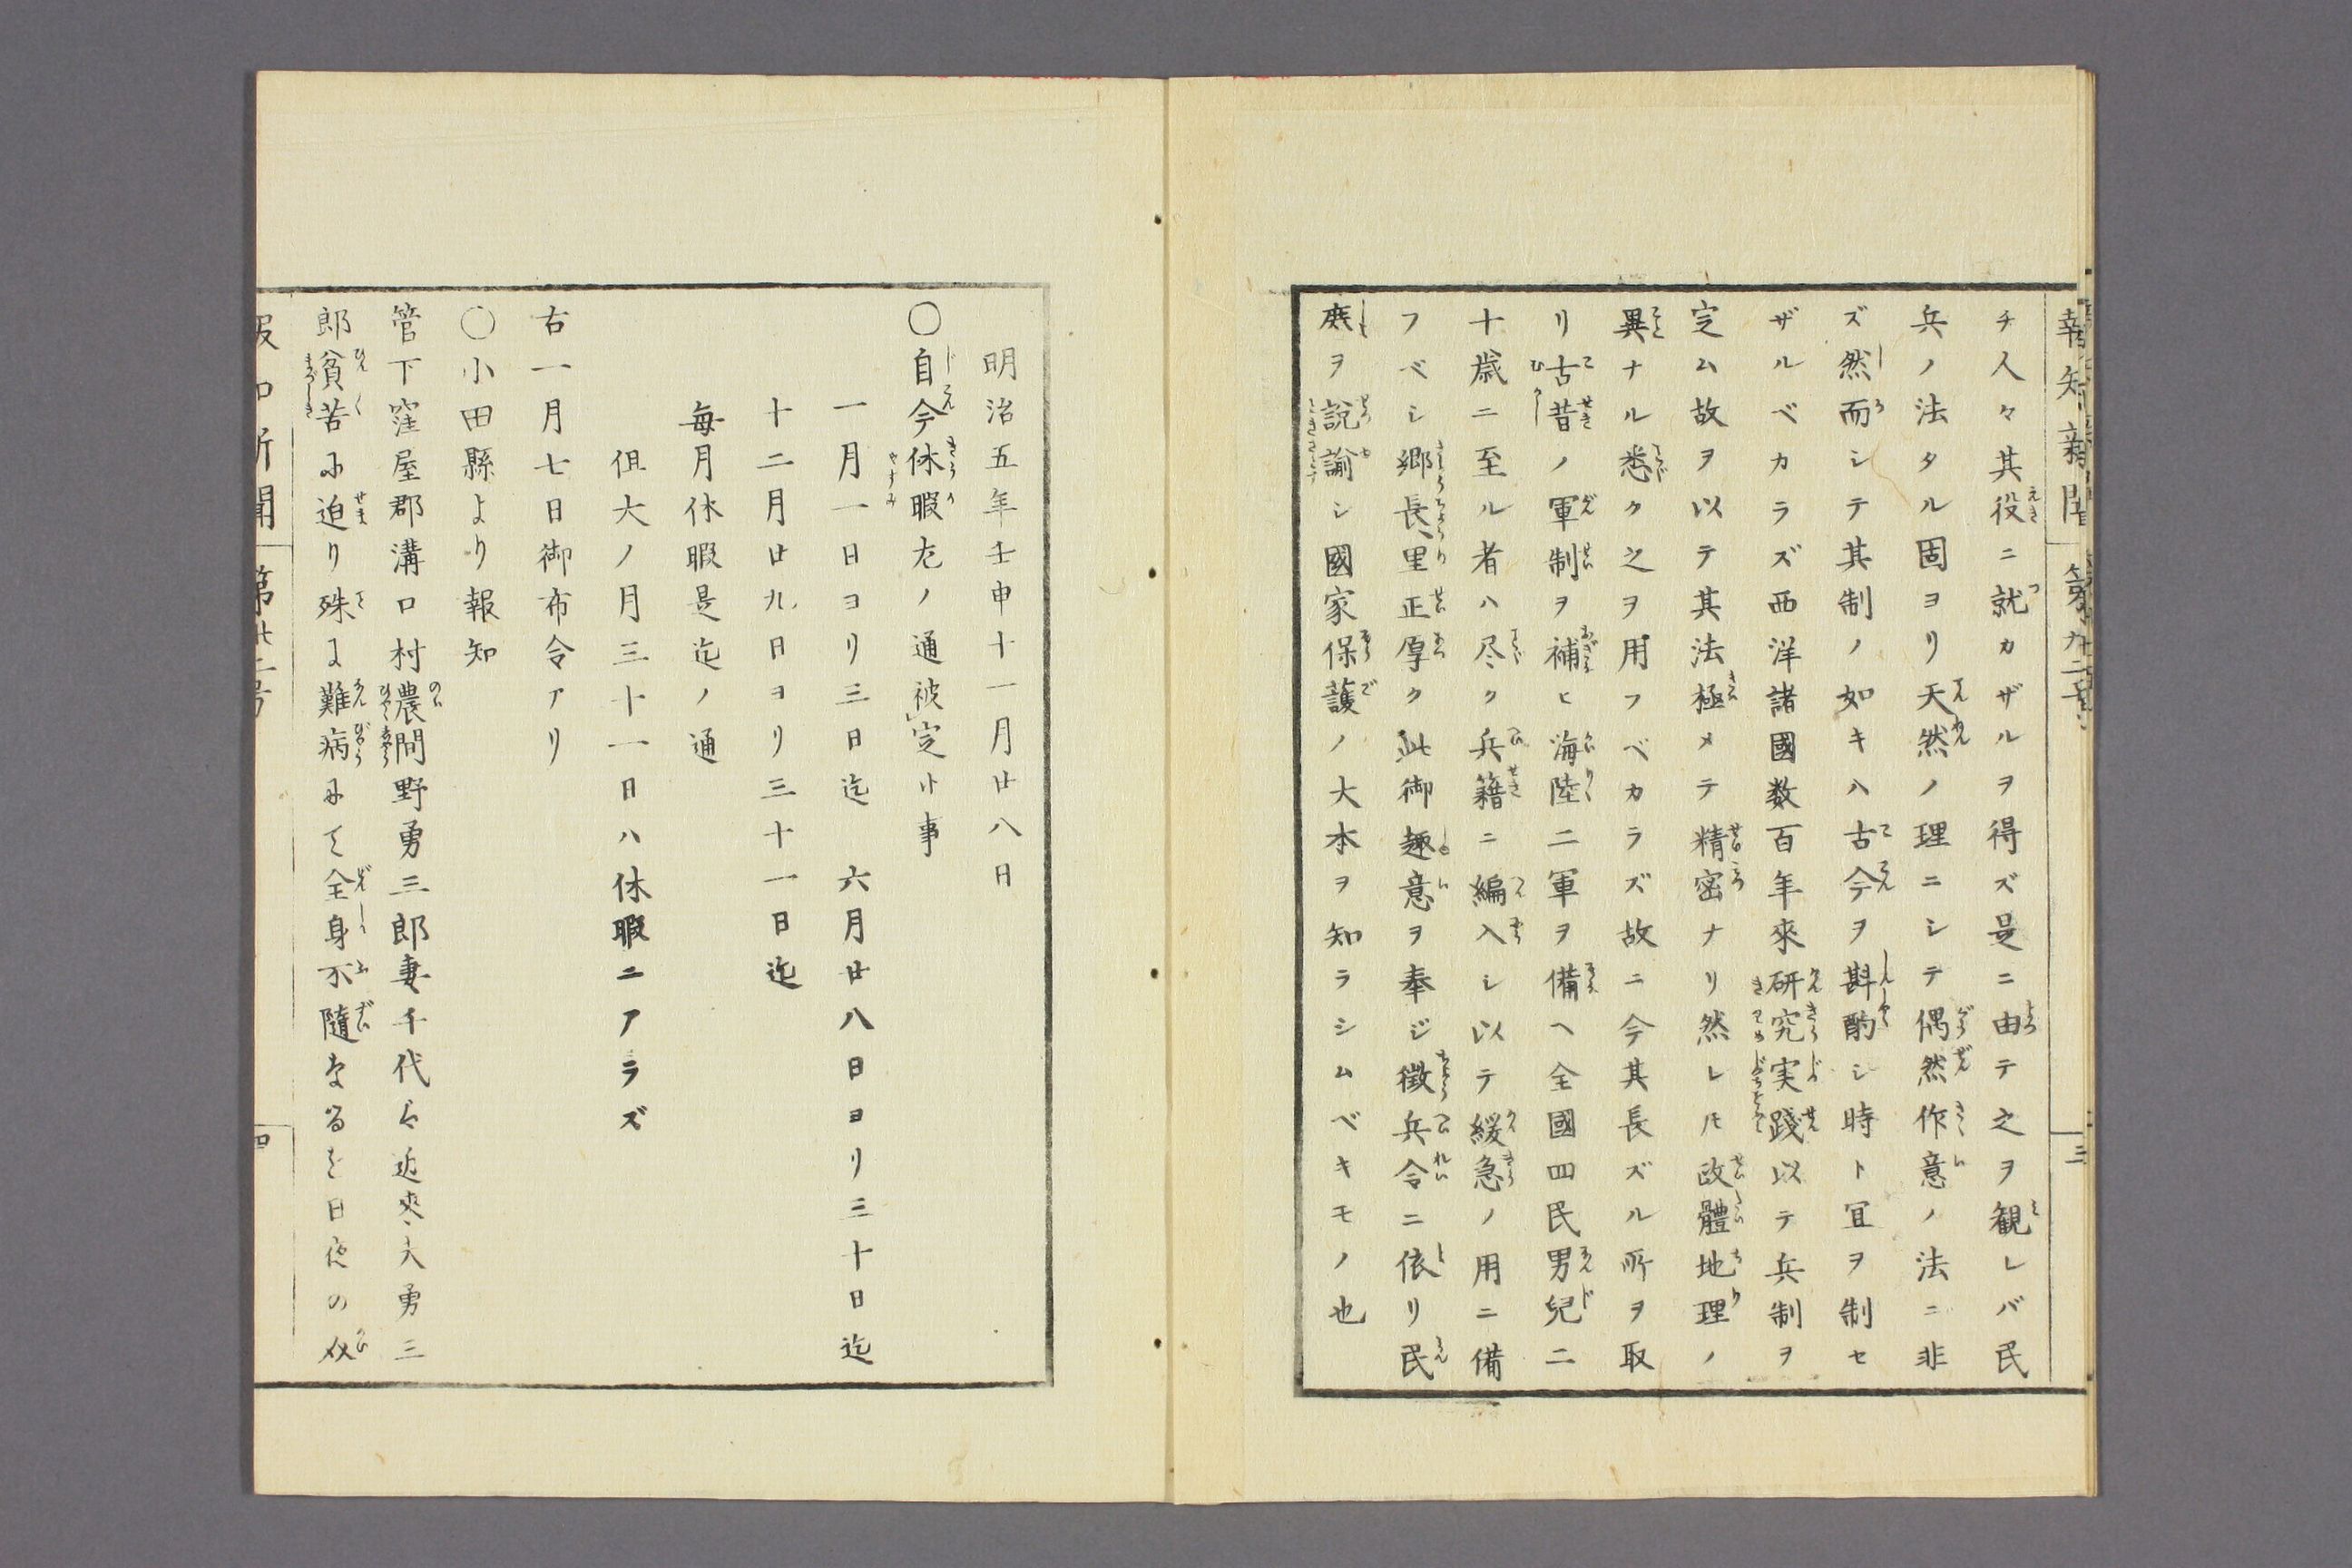 チ人々其役ニ就カザルヲ得ズ是ニ由テ之ヲ観レバ民
兵ノ法タル固ヨリ天然ノ理ニシテ偶然作意ノ法ニ非
ズ然而シテ其制ノ如キハ古今ヲ斟酌シ時ト宜ヲ制セ
ザルベカラズ西洋諸國数百年來研究実践以テ兵制ヲ
定ム故ヲ以テ其法極メテ精密ナリ然レ𪜈政體地理ノ
異ナル悉ク之ヲ用フベカラズ故ニ今其長ズル所ヲ取
リ古昔ノ軍制ヲ補ヒ海陸二軍ヲ備ヘ全國四民男兒二
十歳ニ至ル者ハ尽ク兵籍ニ編入シ以テ緩急ノ用ニ備
フベシ郷長、里正厚ク此御趣意ヲ奉ジ徴兵令ニ依リ民
庶ヲ說諭シ國家保護ノ大本ヲ知ラシムベキモノ也
明治五年壬申十一月廿八日
〇自今休暇左ノ通被定候事
一月一日ヨリ三日迄 六月廿八日ヨリ三十日迄
十二月廿九日ヨリ三十一日迄
毎月休暇是迄ノ通
但大ノ月三十一日ハ休暇ニアラズ
右一月七日御布令アリ
〇小田縣より報知
管下窪屋郡溝口村農間野勇三郎妻千代ハ近來夫勇三
郎貧苦に迫り殊に難病にて全身不隨なるを日夜の